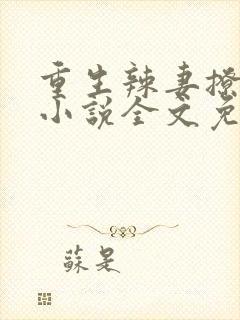 重生辣妻撩
小說全文免
蘇是